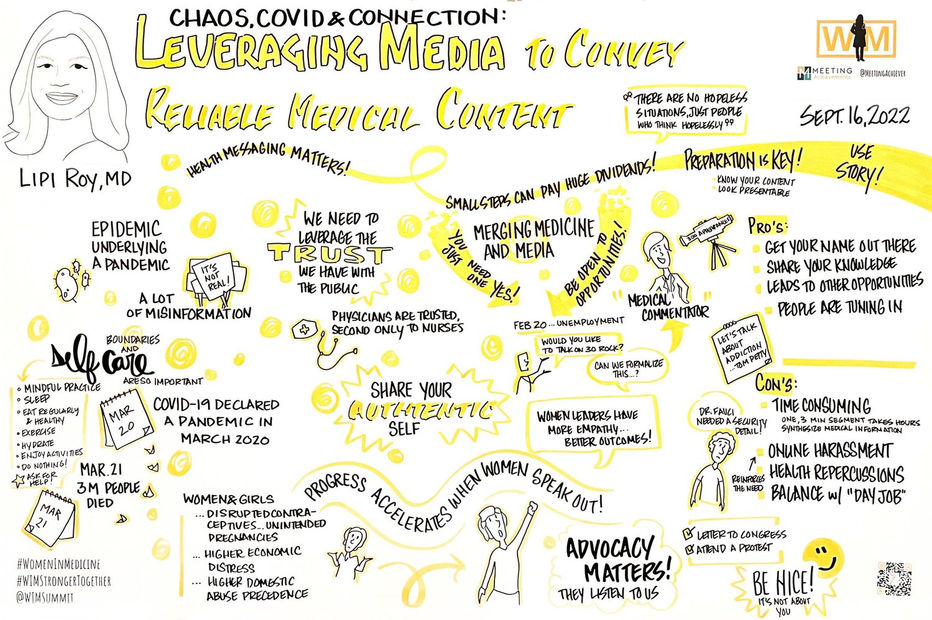 CHAOS, COVID & CONNECTION:
LEVERAGING MEDIA TO CONVEY
RELIABLE MEDICAL CONTENT
LIPI ROY, MD
WIM
MEETING
Achievements
@MEETINGACHIEVER
SEPT. 16, 2022
"THERE ARE NO HOPELESS
SITUATIONS, JUST PEOPLE
WHO THINK HOPELESSLY"
HEALTH MESSAGING MATTERS!
SMALL STEPS CAN PAY HUGE DIVIDENDS!
PREPARATION IS KEY!
• KNOW YOUR CONTENT
• LOOK PRESENTABLE
USE
STORY!
EPIDEMIC
UNDERLYING
A PANDEMIC
IT'S
NOT
REAL!
A LOT
OF MISINFORMATION
WE NEED TO
LEVERAGE THE
TRUST
WE HAVE WITH
THE PUBLIC
PHYSICIANS ARE TRUSTED,
SECOND ONLY TO NURSES
MERGING MEDICINE
AND MEDIA
YOU NEED
JUST ONE YES!
BE OPEN TO
OPPORTUNITIES!
"MEDICAL
COMMENTATOR"
FEB 20 ... UNEMPLOYMENT
WOULD YOU LIKE
TO TALK ON 30 ROCK?
CAN WE FORMALIZE
THIS...?
PRO'S:
• GET YOUR NAME OUT THERE
• SHARE YOUR KNOWLEDGE
• LEADS TO OTHER OPPORTUNITIES
• PEOPLE ARE TUNING IN
LET'S TALK
ABOUT
ADDICTION
...TOM PETTY
BOUNDARIES
AND
self care
ARE SO IMPORTANT
MINDFUL PRACTICE
SLEEP
EAT REGULARLY
& HEALTHY
EXERCISE
HYDRATE
ENJOY ACTIVITIES
DO NOTHING!
ASK FOR
HELP!
MAR
20
COVID-19 DECLARED
A PANDEMIC IN
MARCH 2020
MAR. 21
3M PEOPLE
DIED
MAR
21
SHARE YOUR
AUTHTENTIC
SELF
WOMEN LEADERS HAVE
MORE EMPATHY...
BETTER OUTCOMES!
CON'S:
• TIME CONSUMING
ONE, 3 MIN SEGMENT TAKES HOURS
SYNTHESIZE MEDICAL INFORMATION
• ONLINE HARASSMENT
• HEALTH REPERCUSSIONS
• BALANCE w/ "DAY JOB"
DR. FAUCI
NEEDED A SECURITY
DETAIL!
REINFORCES
THE NEED
PROGRESS ACCELERATES WHEN WOMEN SPEAK OUT!
WOMEN & GIRLS
... DISRUPTED CONTRA-
CEPTIVES... UNINTENDED
PREGNANCIES
... HIGHER ECONOMIC
DISTRESS
... HIGHER DOMESTIC
ABUSE PRECEDENCE
ADVOCACY
MATTERS!
THEY LISTEN TO US
LETTER TO CONGRESS
ATTEND A PROTEST
BE NICE!
IT'S NOT ABOUT
YOU
#WOMENINMEDICINE
#WIMSTRONGERTOGETHER
@WIMSUMMIT